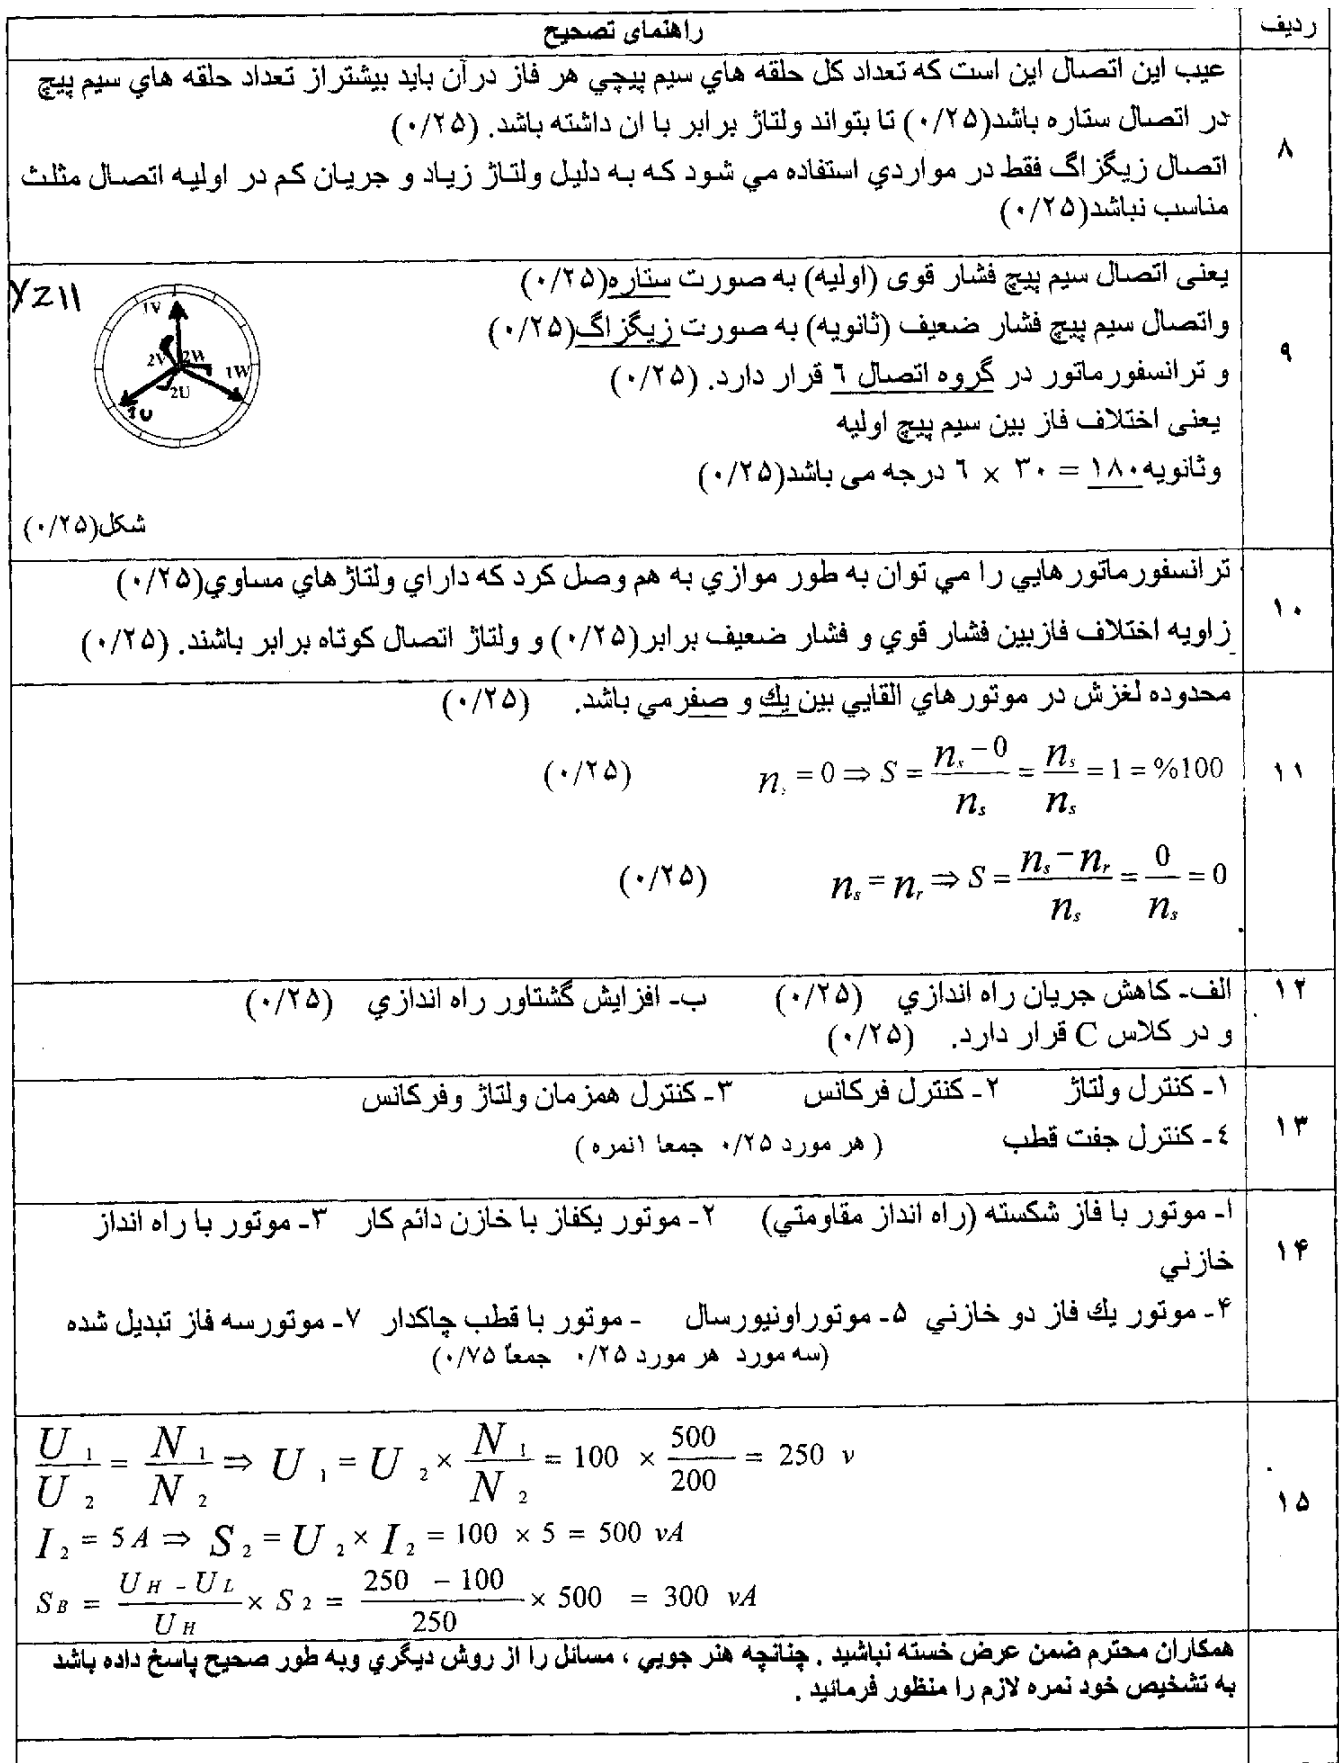 ردیف راهنمای تصحیح
عیب این اتصال این است که تعداد کل حلقه هاي سیم پیچي هر فاز درآن باید بیشتراز تعداد حلقه هاي سیم پیچ
در اتصال ستاره باشد(۰/۲۵) تا بتواند ولتاژ برابر با ان داشته باشد. (۰/۲۵)
۸
اتصال زیگزاگ فقط در مواردي استفاده مي شود که به دلیل ولتاژ زیاد و جریان کم در اولیه اتصال مثلث
مناسب نباشد(۰/۲۵)
یعنی اتصال سیم پیچ فشار قوی (اولیه) به صورت ستاره(۰/۲۵)
YZ11
واتصال سیم پیچ فشار ضعیف (ثانویه) به صورت زیگزاگ(۰/۲۵)
1V
2V 2W 1W
2U
1U
۹
و ترانسفورماتور در گروه اتصال ٦ قرار دارد. (۰/۲۵)
یعنی اختلاف فاز بین سیم پیچ اولیه
وثانویه۱۸۰ = ۳۰ × ٦ درجه می باشد(۰/۲۵)
شکل(۰/۲۵)
ترانسفورماتورهایي را مي توان به طور موازي به هم وصل کرد که داراي ولتاژهاي مساوي(۰/۲۵)
۱۰
زاویه اختلاف فازبین فشار قوي و فشار ضعیف برابر(۰/۲۵) و ولتاژ اتصال کوتاه برابر باشند. (۰/۲۵)
محدوده لغزش در موتورهاي القایي بین یك و صفرمي باشد. (۰/۲۵)
۱۱
n_s = 0 ⇒ S = (n_s − 0)/n_s = n_s/n_s = 1 = %100 (۰/۲۵)
n_s = n_r ⇒ S = (n_s − n_r)/n_s = 0/n_s = 0 (۰/۲۵)
۱۲ الف- کاهش جریان راه اندازي (۰/۲۵) ب- افزایش گشتاور راه اندازي (۰/۲۵)
و در کلاس C قرار دارد. (۰/۲۵)
۱- کنترل ولتاژ ۲- کنترل فرکانس ۳- کنترل همزمان ولتاژ وفرکانس
۱۳
٤- کنترل جفت قطب ( هر مورد ۰/۲۵ جمعا ۱نمره )
ا- موتور با فاز شکسته (راه انداز مقاومتي) ۲- موتور یکفاز با خازن دائم کار ۳- موتور با راه انداز
۱۴
خازني
۴- موتور یك فاز دو خازني ۵- موتوراونیورسال - موتور با قطب چاکدار ۷- موتورسه فاز تبدیل شده
(سه مورد هر مورد ۰/۲۵ جمعاً ۰/۷۵)
U_1/U_2 = N_1/N_2 ⇒ U_1 = U_2 × N_1/N_2 = 100 × 500/200 = 250 v
۱۵
I_2 = 5A ⇒ S_2 = U_2 × I_2 = 100 × 5 = 500 vA
S_B = (U_H - U_L)/U_H × S_2 = (250 − 100)/250 × 500 = 300 vA
همکاران محترم ضمن عرض خسته نباشید . چنانچه هنر جویي ، مسائل را از روش دیگري وبه طور صحیح پاسخ داده باشد
به تشخیص خود نمره لازم را منظور فرمائید .